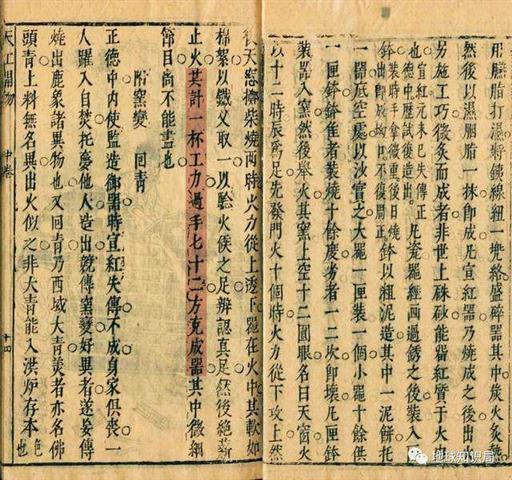 那臙脂打濕將鐵線紐一兠絡盛碎器其中炭火炙熱
然後以濕胭脂一抹即成凡宣紅器乃燒成之後出火
另施工巧微炙而成者非世上硃砂能留紅質于火內
也宣紅元末已失傳正德中歷試後造出 凡瓷器經畫過銹之後裝入匣
鉢裝時手拿微重後日燒出即成坳口不復周正 鉢以粗泥造其中一泥餅托
一器底空處以沙實之大器一匣裝一個小器十餘供
一匣鉢鉢佳者裝燒十餘度劣者一二次即壞凡匣鉢
裝器入窯然後舉火其窯上空十二圓眼名曰天窗火
以十二時辰為足先發門火十個時火力從下攻上然
後天窓擲柴燒兩時火力從上透下器在火中其軟如
棉絮以鐵叉取一以驗火候之足辨認真足然後絶薪
止火共計一杯工力過手七十二方克成器其中微細
節目尚不能盡也
附窯變 回青
正德中內使監造御器時宣紅失傳不成身家俱喪一
人躍入自焚托夢他人造出競傳窯變好異者遂妄傳
燒出鹿象諸異物也又回青乃西域大青美者亦名佛
頭青上料無名異出火似之非大青能入洪爐存本色也
天工開物 中卷 十四
地球知識局